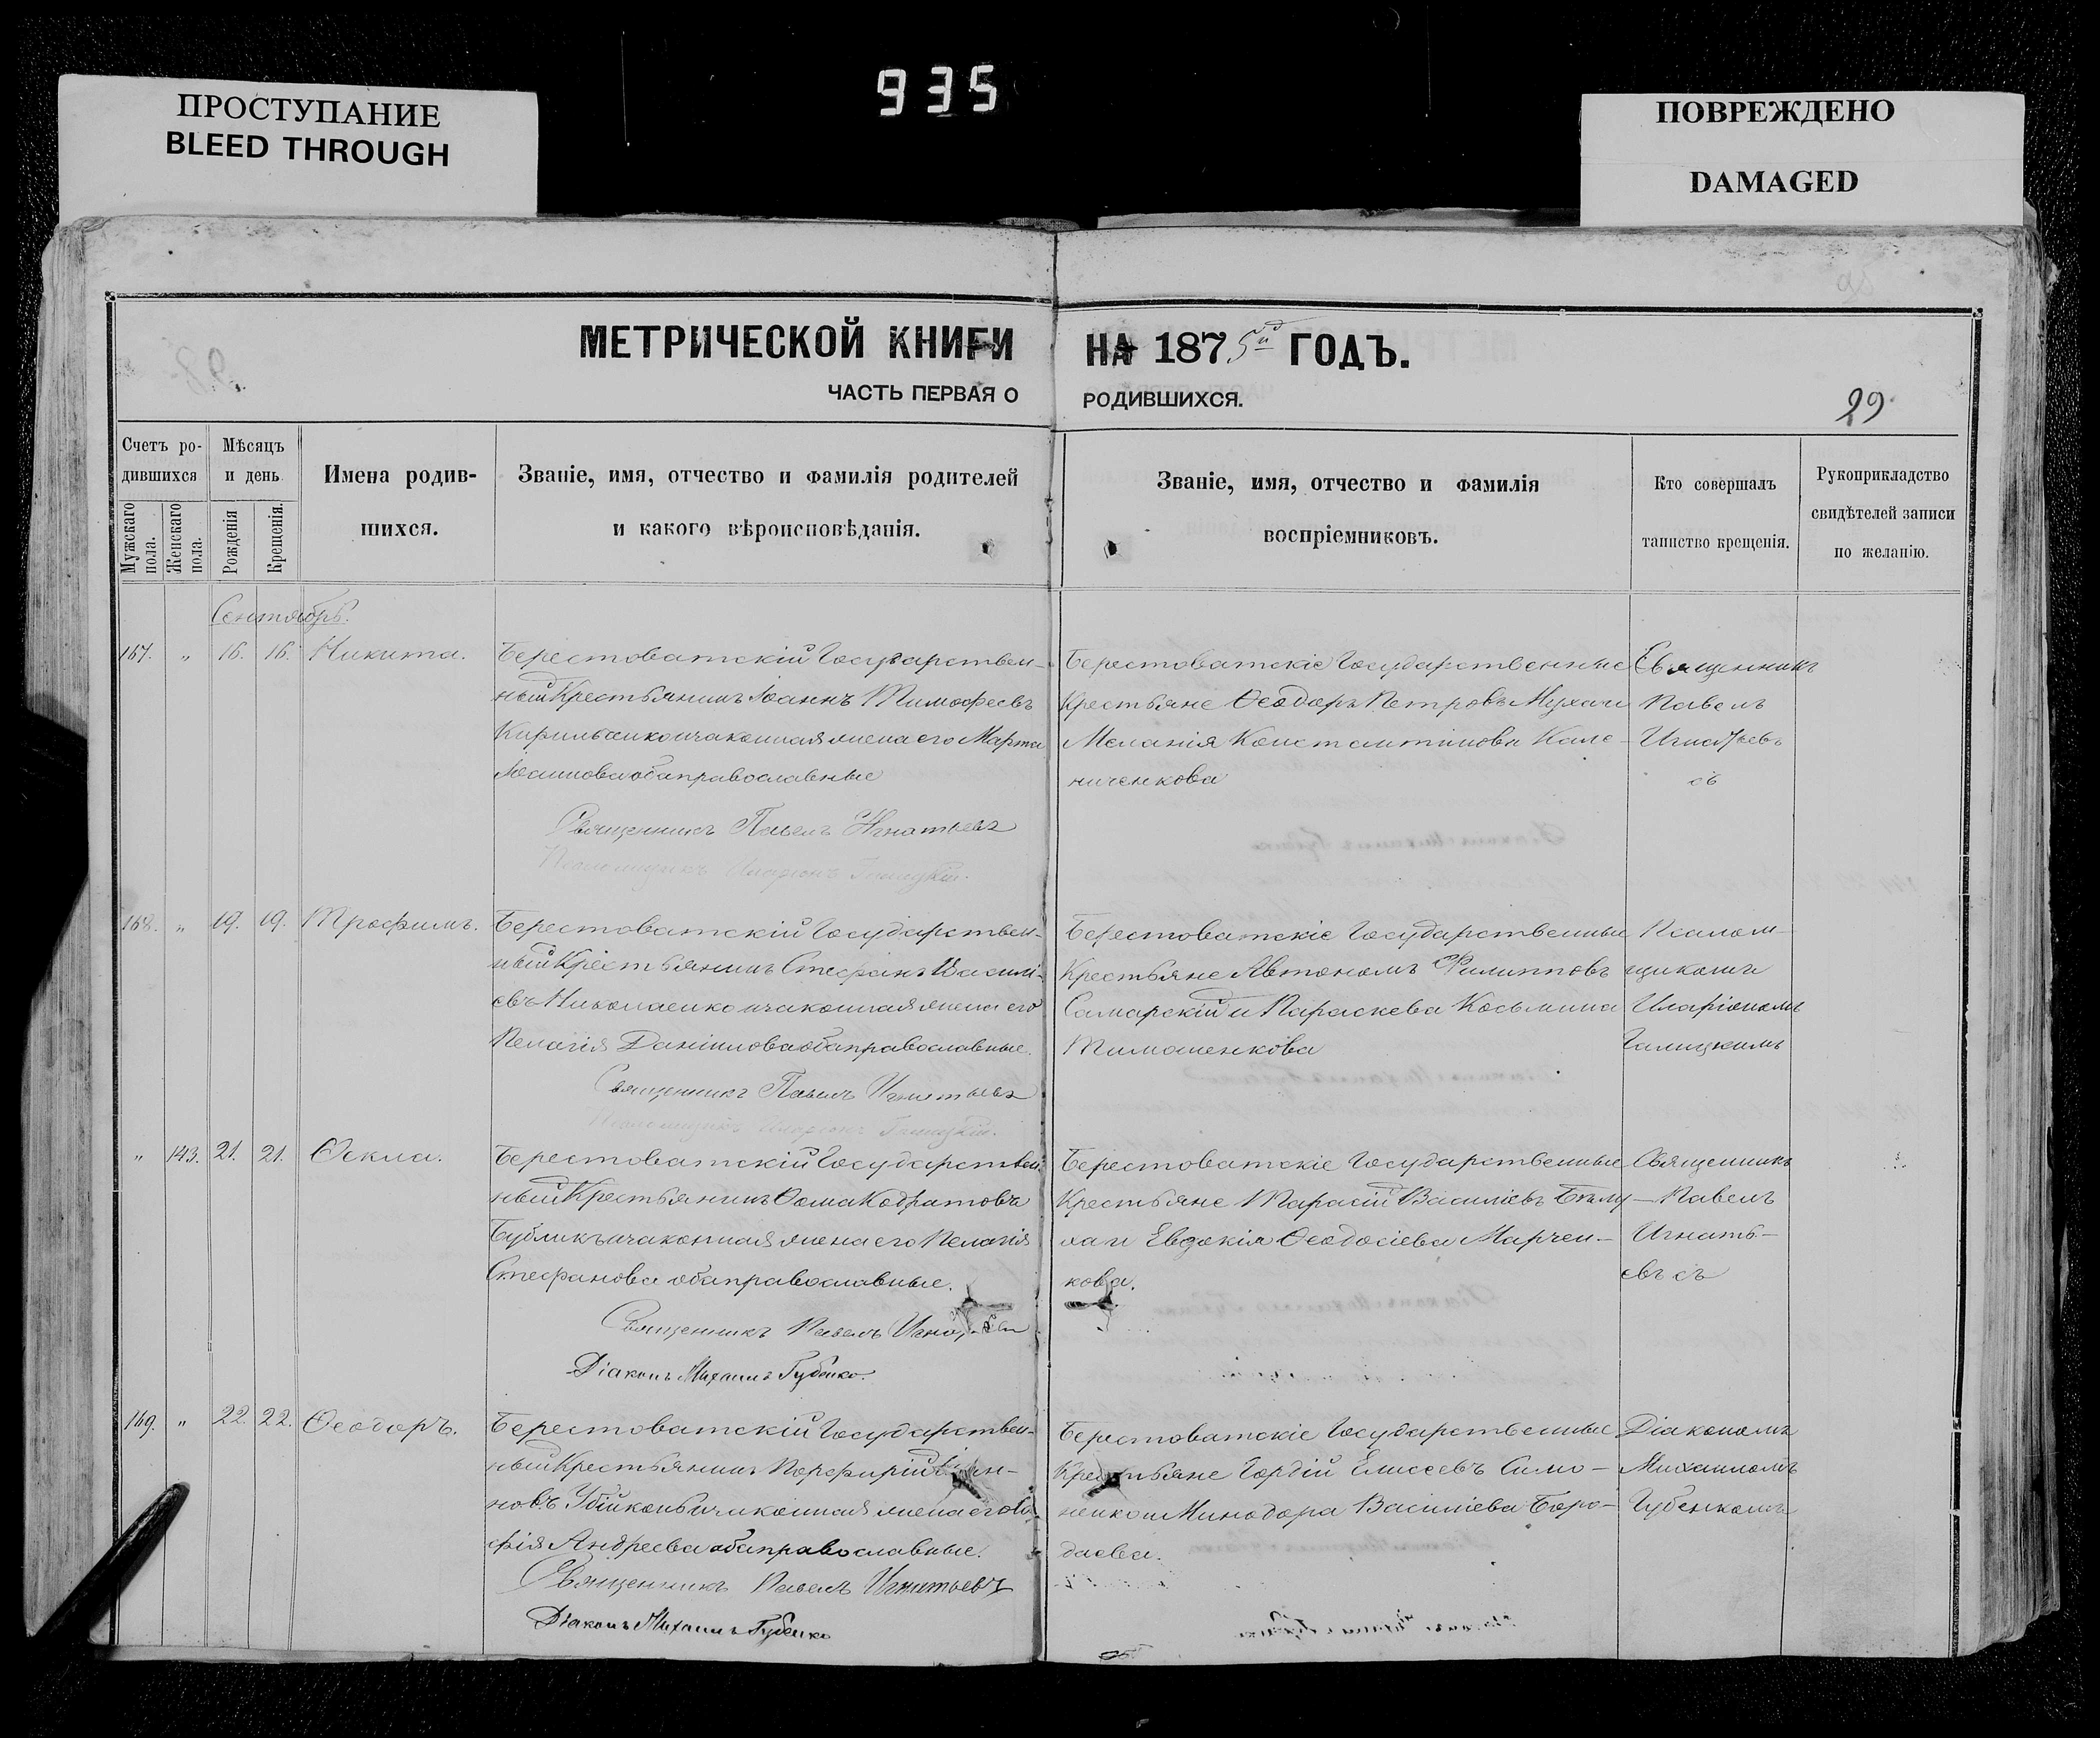 935
ПРОСТУПАНИЕ
BLEED THROUGH
ПОВРЕЖДЕНО
DAMAGED
МЕТРИЧЕСКОЙ КНИГИ НА 1875й ГОДЪ.
ЧАСТЬ ПЕРВАЯ О РОДИВШИХСЯ.
29
Счетъ ро-
дившихся
Мужскаго пола.
Женскаго пола.
Мѣсяцъ
и день
Рожденія
Крещенія.
Имена родив-
шихся.
Званіе, имя, отчество и фамилія родителей
и какого вѣроисповѣданія.
Званіе, имя, отчество и фамилія
воспріемниковъ.
Кто совершалъ
таинство крещенія.
Рукоприкладство
свидѣтелей записи
по желанію.
Сентябрь.
167. " 16. 16. Никита.
Берестоватскій Государствен-
ный Крестьянинъ Іоаннъ Тимофеевъ
Кирильченко и законная жена его Марта
Іоаннова оба православные
Священникъ Павелъ Игнатьевъ
Псаломщикъ Иларіонъ Галицкій.
Берестоватскіе Государственные
Крестьяне Ѳеодоръ Петровъ Мухаи
Меланія Константинова Кале-
ниченкова
Священникъ
Павелъ
Игнатьевъ
съ
168. " 19. 19. Трофимъ.
Берестоватскій Государствен-
ный Крестьянинъ Стефанъ Василі-
евъ Николаенко и законная жена его
Пелагія Даніилова оба православные.
Священникъ Павелъ Игнатьевъ
Псаломщикъ Иларіонъ Галицкій.
Берестоватскіе Государственные
Крестьяне Автономъ Филипповъ
Самарскій и Параскева Косьмина
Тимошенкова
Псалом-
щикомъ
Иларіономъ
Галицкимъ
" 143. 21. 21. Ѳекла.
Берестоватскій Государствен-
ный Крестьянинъ Ѳома Кодратовъ
Бубликъ и законная жена его Пелагія
Стефанова оба православные.
Священникъ Павелъ Игнатьевъ
Діаконъ Михаилъ Губенко.
Берестоватскіе Государственные
Крестьяне Тарасій Василіевъ Бѣлу-
ха и Евдокія Ѳеодосіева Марчен-
кова.
Священникъ
Павелъ
Игнать-
евъ съ
169. " 22. 22. Ѳеодоръ.
Берестоватскій Государствен-
ный Крестьянинъ Порфирій
новъ и законная жена его
фія Андреева оба православные.
Священникъ Павелъ Игнатьевъ
Діаконъ Михаилъ Губенко
Берестоватскіе Государственные
Крестьяне Гордій Елисеевъ Симо-
ненко и Минодора Василіева Боро-
даева.
Діакономъ
Михаиломъ
Губенкомъ